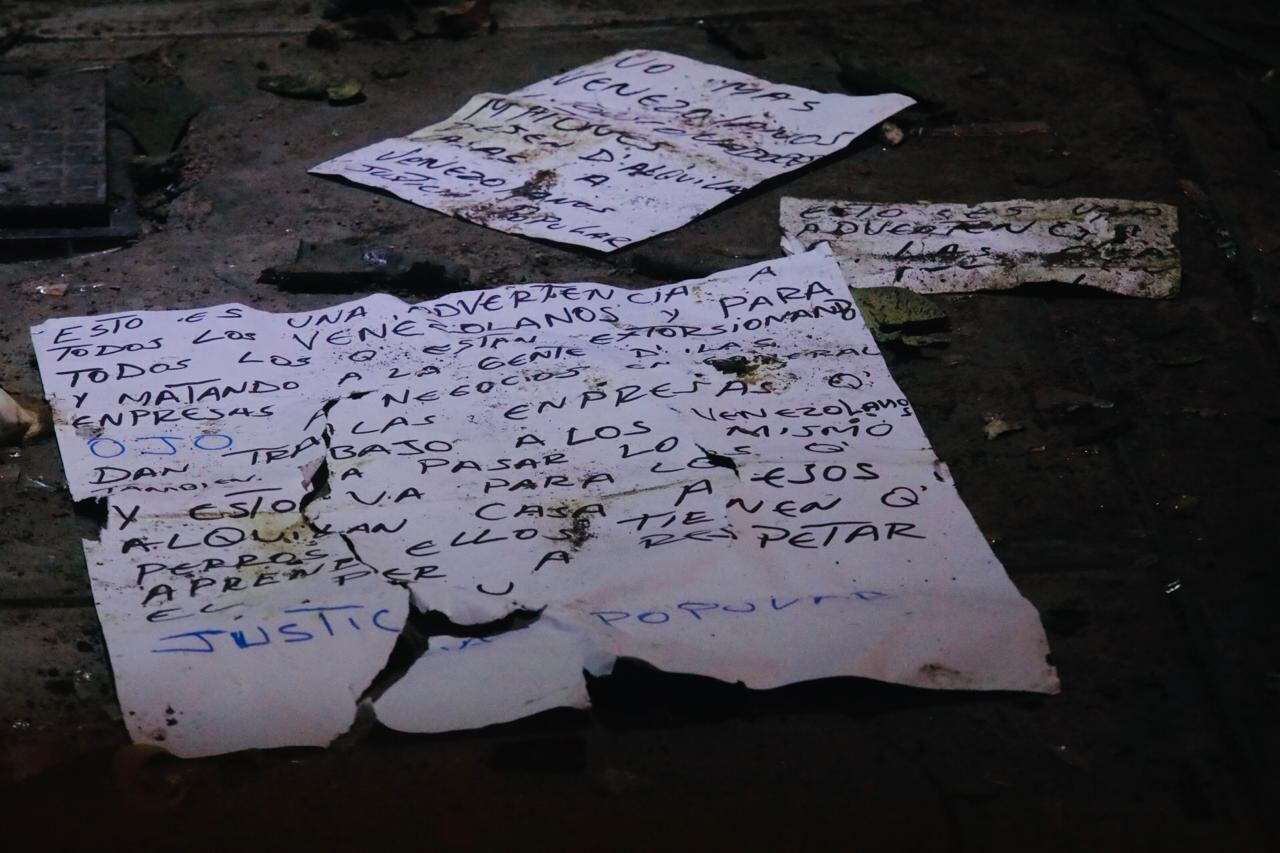 NO MAS
VENEZOLANOS
MATONES
CESEN D'ALQUILAR
CASAS A
VENEZOLANOS
JUSTICIA POPULAR
ESTO ES UNA
ADVERTENCIA
ESTO ES UNA ADVERTENCIA A
TODOS LOS VENEZOLANOS Y PARA
TODOS LOS Q' ESTAN EXTORSIONANDO
Y MATANDO A LA GENTE D' LAS
ENPRESAS NEGOCIOS EN GENERAL
OJO A LAS ENPRESAS Q'
DAN TRABAJO A LOS VENEZOLANOS
TAMBIEN A PASAR LO MISMO
Y ESTO VA PARA LOS Q'
ALQUILAN CASA A ESOS
PERROS ELLOS TIENEN Q'
APRENDER A RESPETAR
JUSTICIA POPULAR